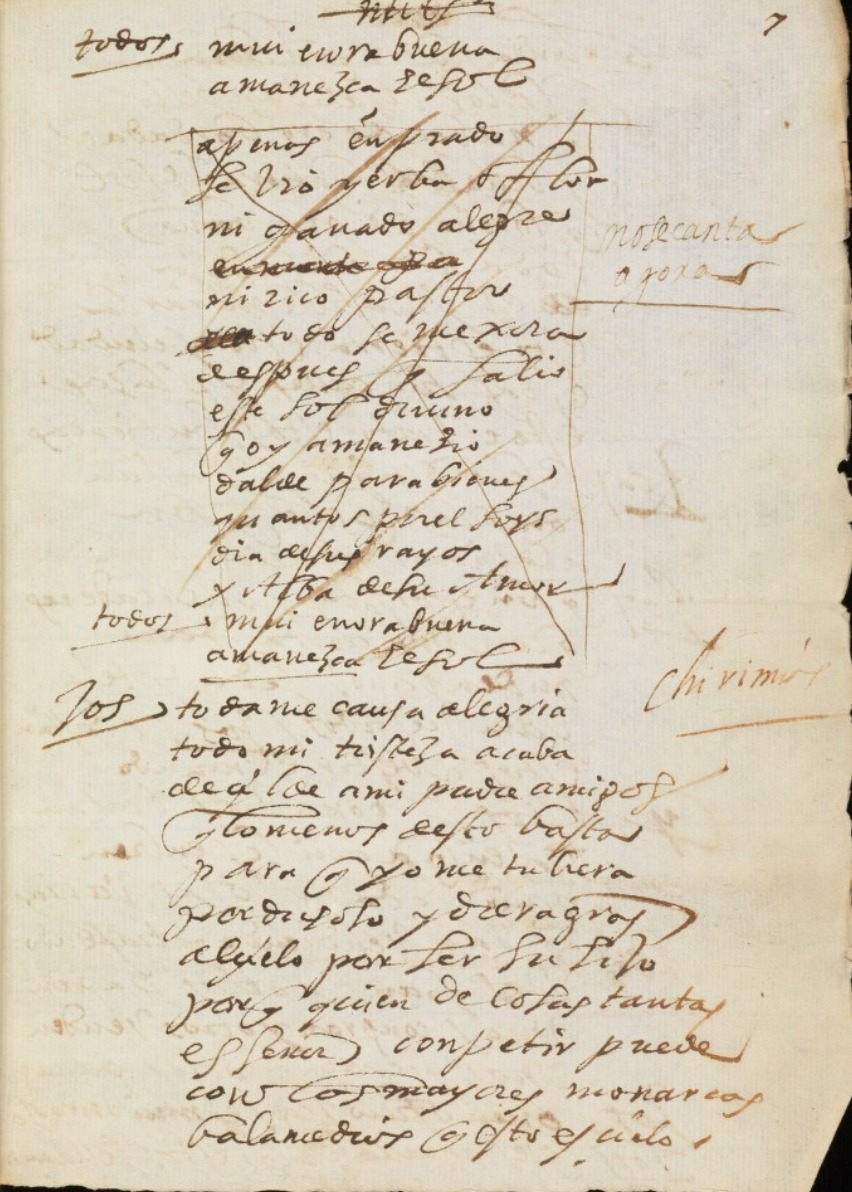 7
todos mui enorabuena
amanezca el sol
apenas en prado
se vio yerba o flor
ni ganado alegre
ni rico pastor
todo se mexora
despues q salio
este sol divino
q oy amanezio
dalde parabienes
quantos por el soys
dia de sus rayos
y Alba de su Amor
no se canta
agora
todos mui enorabuena
amanezca el sol
chirimias
Jos toda me causa alegria
todo mi tristeza acaba
amigos
q lo menos desto basta
para q yo me tubiera
por dichoso y diera gras
al çielo por ser su hijo
porq quien de cosas tantas
es señor conpetir puede
con los mayores monarcas
q esto es çielo